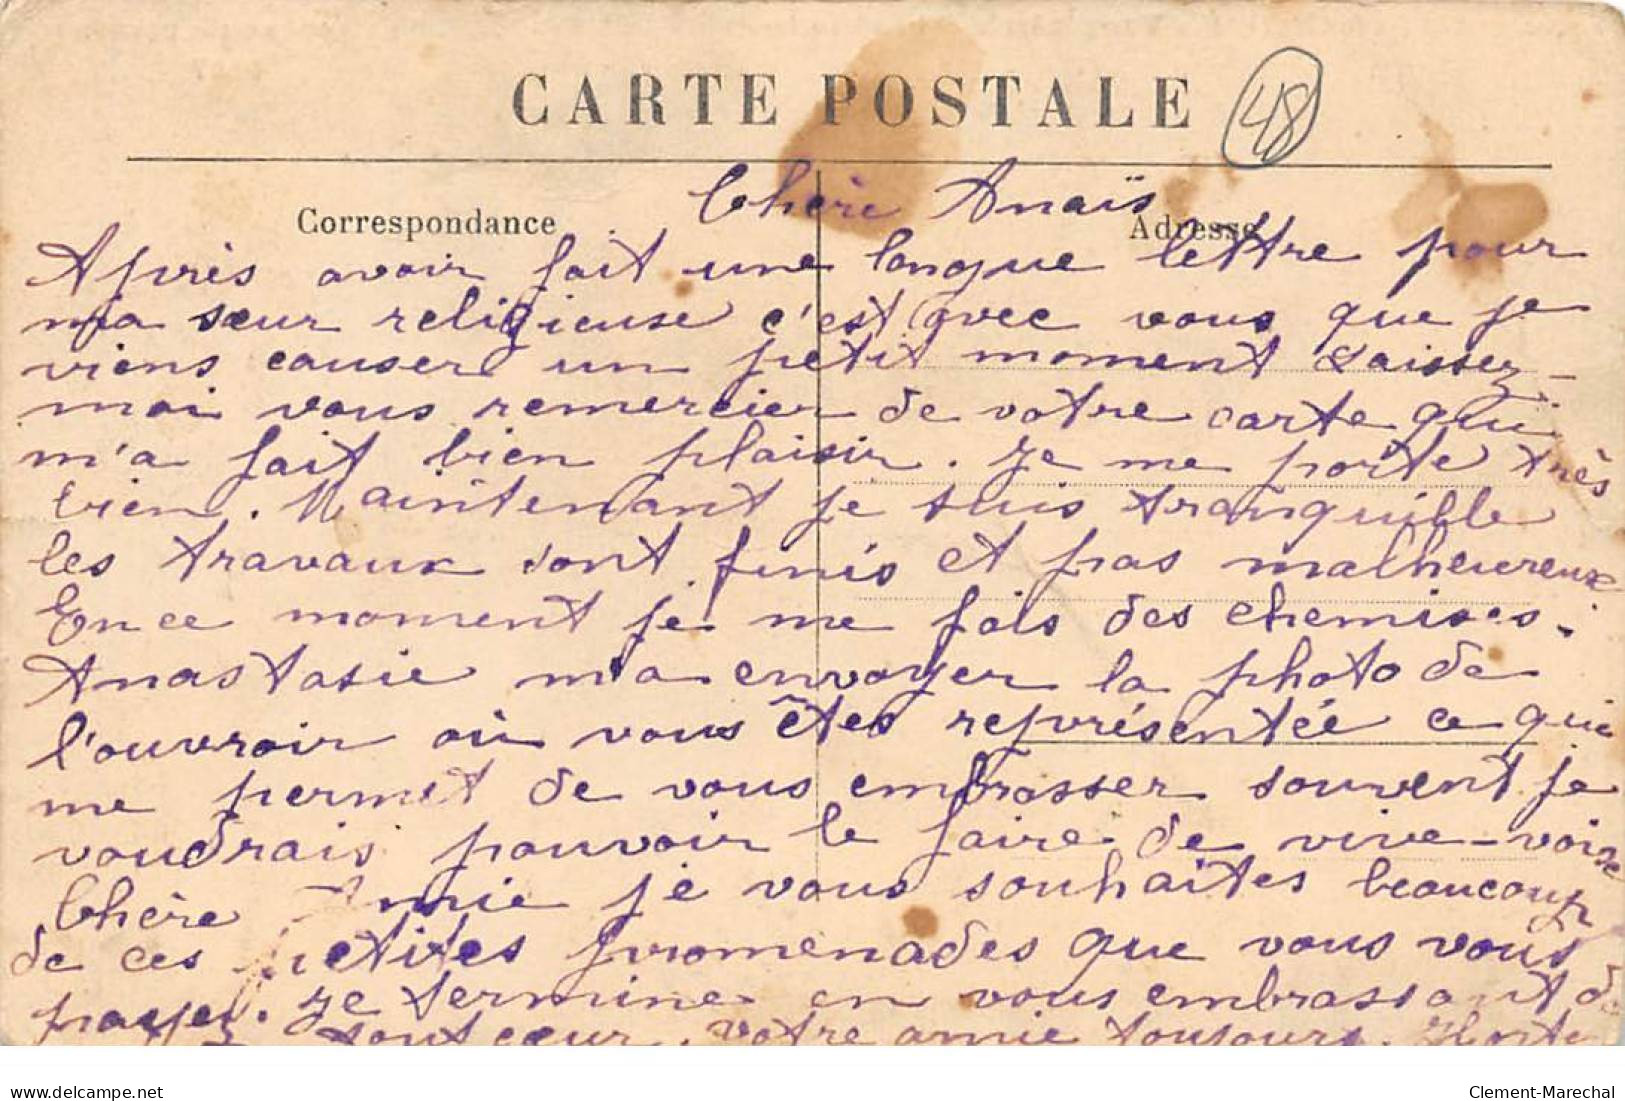 CARTE POSTALE
48
Correspondance
Adresse
Chère Anaïs
Après avoir fait une longue lettre pour
ma sœur religieuse c'est avec vous que je
viens causer un petit moment Laissez-
moi vous remercier de votre carte qui
m'a fait bien plaisir. Je me porte très
bien. Maintenant je suis tranquille
les travaux sont finis et pas malheureux
En ce moment je me fais des chemises.
Anastasie m'a envoyer la photo de
l'ouvroir où vous êtes représentée ce qui
me permet de vous embrasser souvent je
voudrais pouvoir le faire de vive-voixe
Chère Amie je vous souhaites beaucoup
de ces petites promenades que vous vous
payez. Je termine en vous embrassant de
tout cœur. Votre amie toujours.
delcampe.net
Clement-Marechal